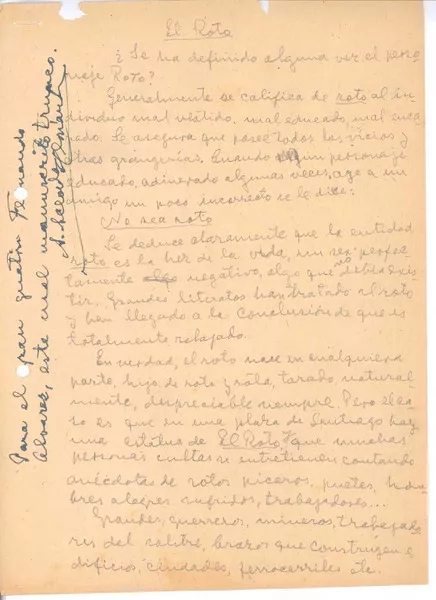 El Roto
¿Se ha definido alguna vez el perso
naje Roto?
Generalmente se califica de roto al in
dividuo mal vestido, mal educado, mal
Se asegura que posee todos los vicios y
otras granjerías. Cuando un personaje
educado, adinerado algunas veces, oye a un
amigo un poco incorrecto se le dice:
No sea roto
Se deduce claramente que la entidad
roto es la hez de la vida, un ser perfec
tamente negativo, algo que no debía exis
tir. Grandes literatos han tratado al roto
i han llegado a la conclusión de que es
totalmente rebajado.
En verdad, el roto nace en cualquiera
parte, hijo de roto y rota, tarado, natural
mente, despreciable siempre. Pero el ca
so es que en una plaza de Santiago hay
una estatua de El Roto i que muchas
personas cultas se entretienen contando
anécdotas de rotos pícaros, poetas, hom
bres alegres sufridos, trabajadores...
Grandes, guerreros, mineros, trabajado
res del salitre, brazos que construyen e
dificios, ciudades, ferrocarriles etc.
Para el gran Fernando
Alvarez, este mal manuscrito